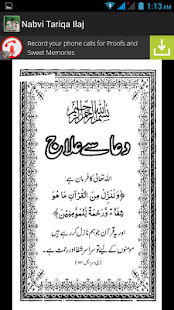 1:13 AM
Nabvi Tariqa Ilaj
Record your phone calls for Proofs and
Sweet Memories
بسم اللہ الرحمن الرحیم
دعا سے علاج
اللہ تعالیٰ کا فرمان ہے:
﴿وَنُنَزِّلُ مِنَ الْقُرْآنِ مَا هُوَ
شِفَاءٌ وَّرَحْمَةٌ لِّلْمُؤْمِنِيْنَ﴾
اور یہ قرآن جو ہم نازل کر رہے ہیں
مومنوں کے لیے تو سراسر شفا اور رحمت ہے۔